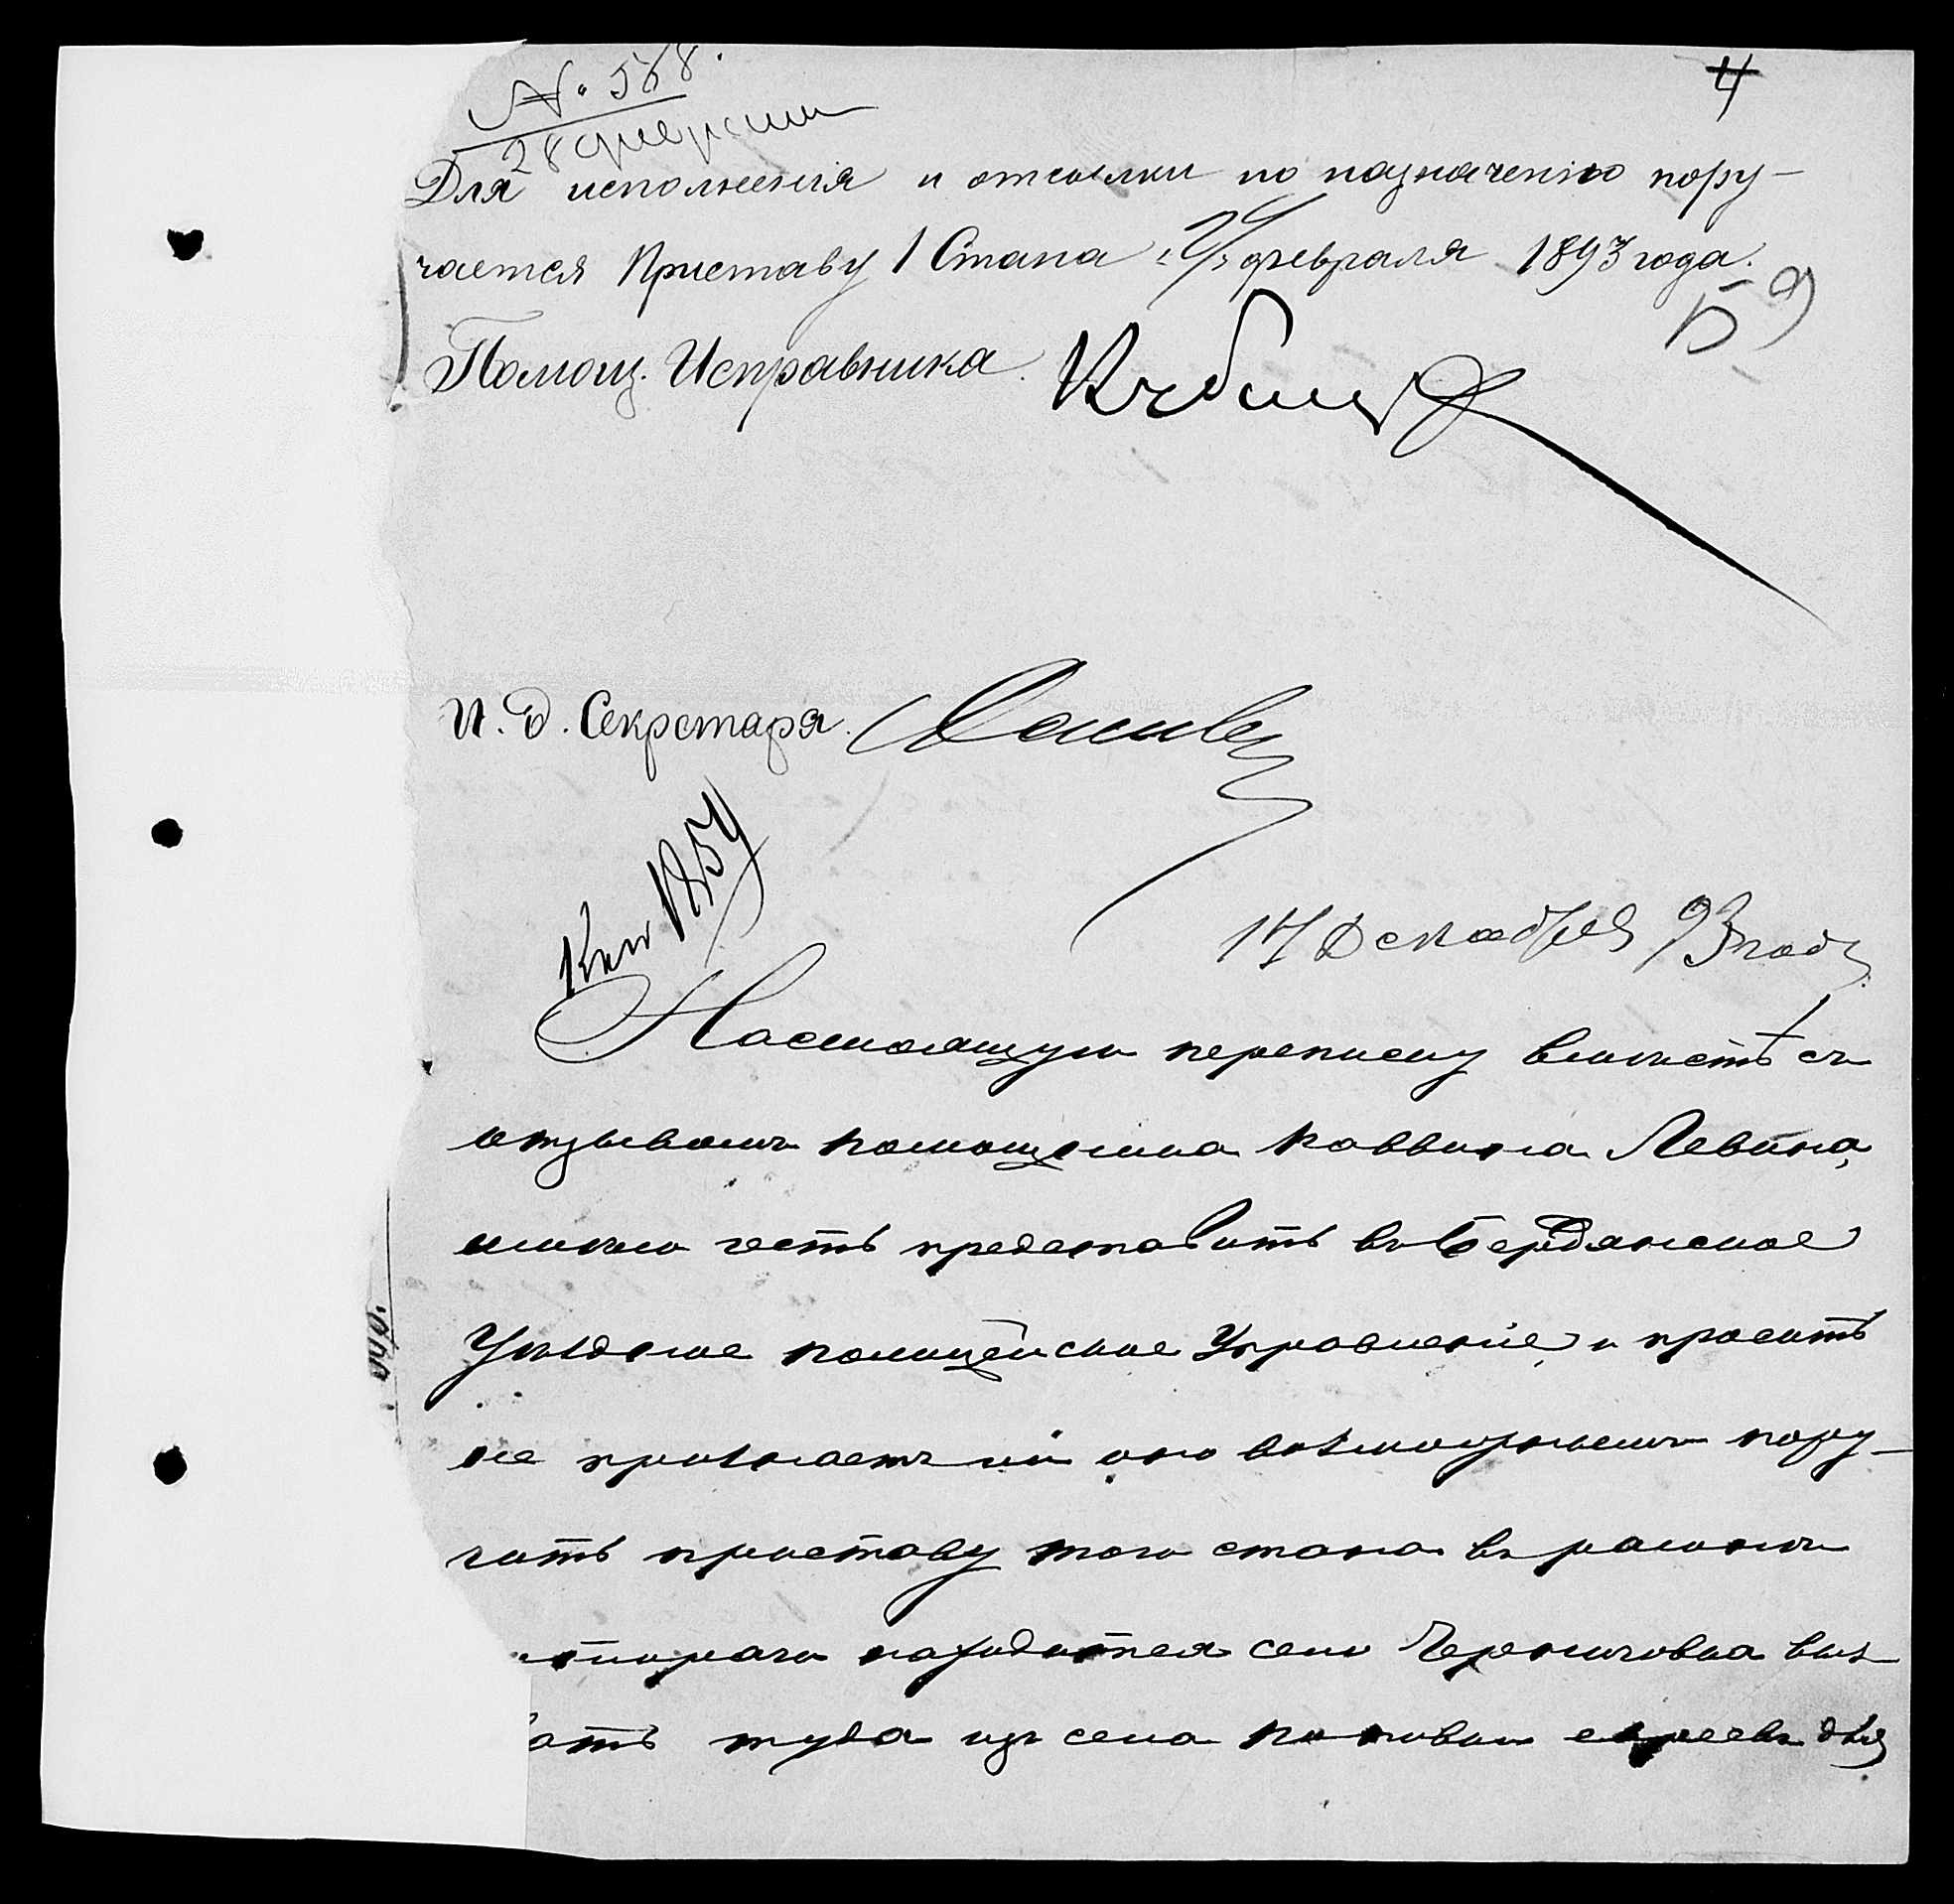 4
№ 568.
28 февраля
Для исполненія и отсылки по назначенію пору-
чается Приставу 1 Стана "24" февраля 1893 года.
59
Помощ. Исправника
И. д. Секретаря.
17 Декабря 93 года
Настоящую переписку вмѣстѣ съ
отзывомъ помощника раввина Левина,
имѣю честь представить въ Бердянское
Уѣздное полицейское Управленіе и просить
не признаетъ ли оно возможнымъ пору-
чить приставу того стана въ раіонѣ
котораго находится село Черниговка выз-
вать туда изъ села Поповки евреевъ для